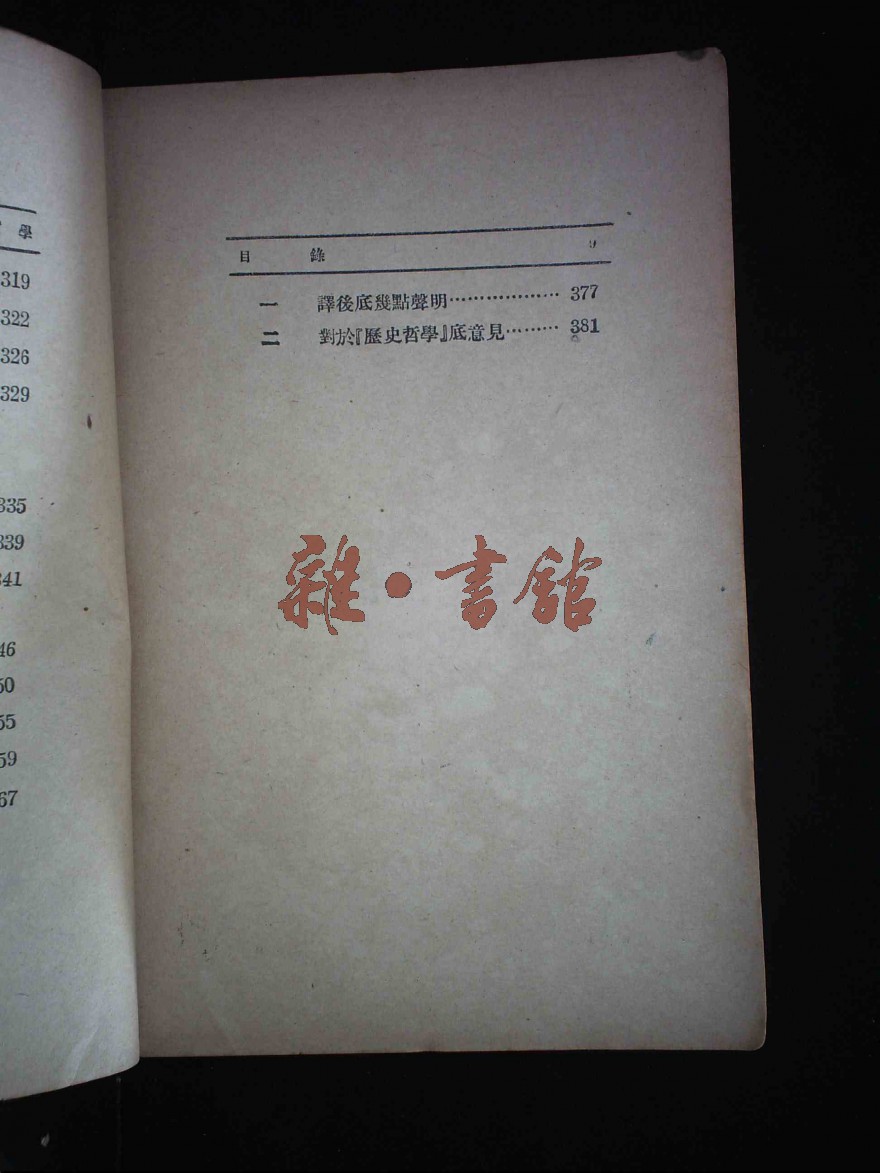 學
319
322
326
329
335
339
341
46
50
55
59
67
目 錄 9
一 譯後底幾點聲明……………… 377
二 對於『歷史哲學』底意見……… 381
雜·書館